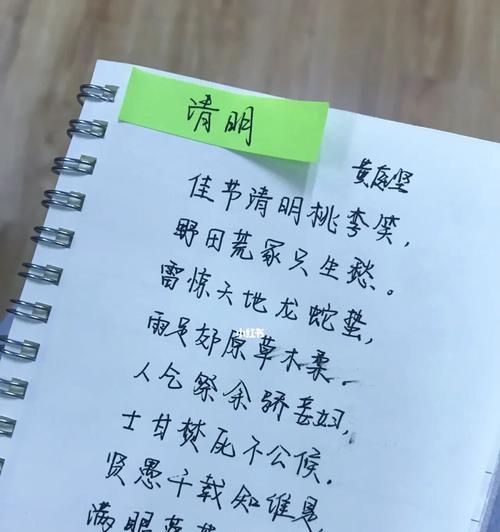 清明
黄庭坚
佳节清明桃李笑,
野田荒冢只生愁。
雷惊天地龙蛇蛰,
小红书
雨足郊原草木柔。
人气祭余骄妾妇,
士甘焚死不公候。
贤愚千载知谁是,
满眼蓬